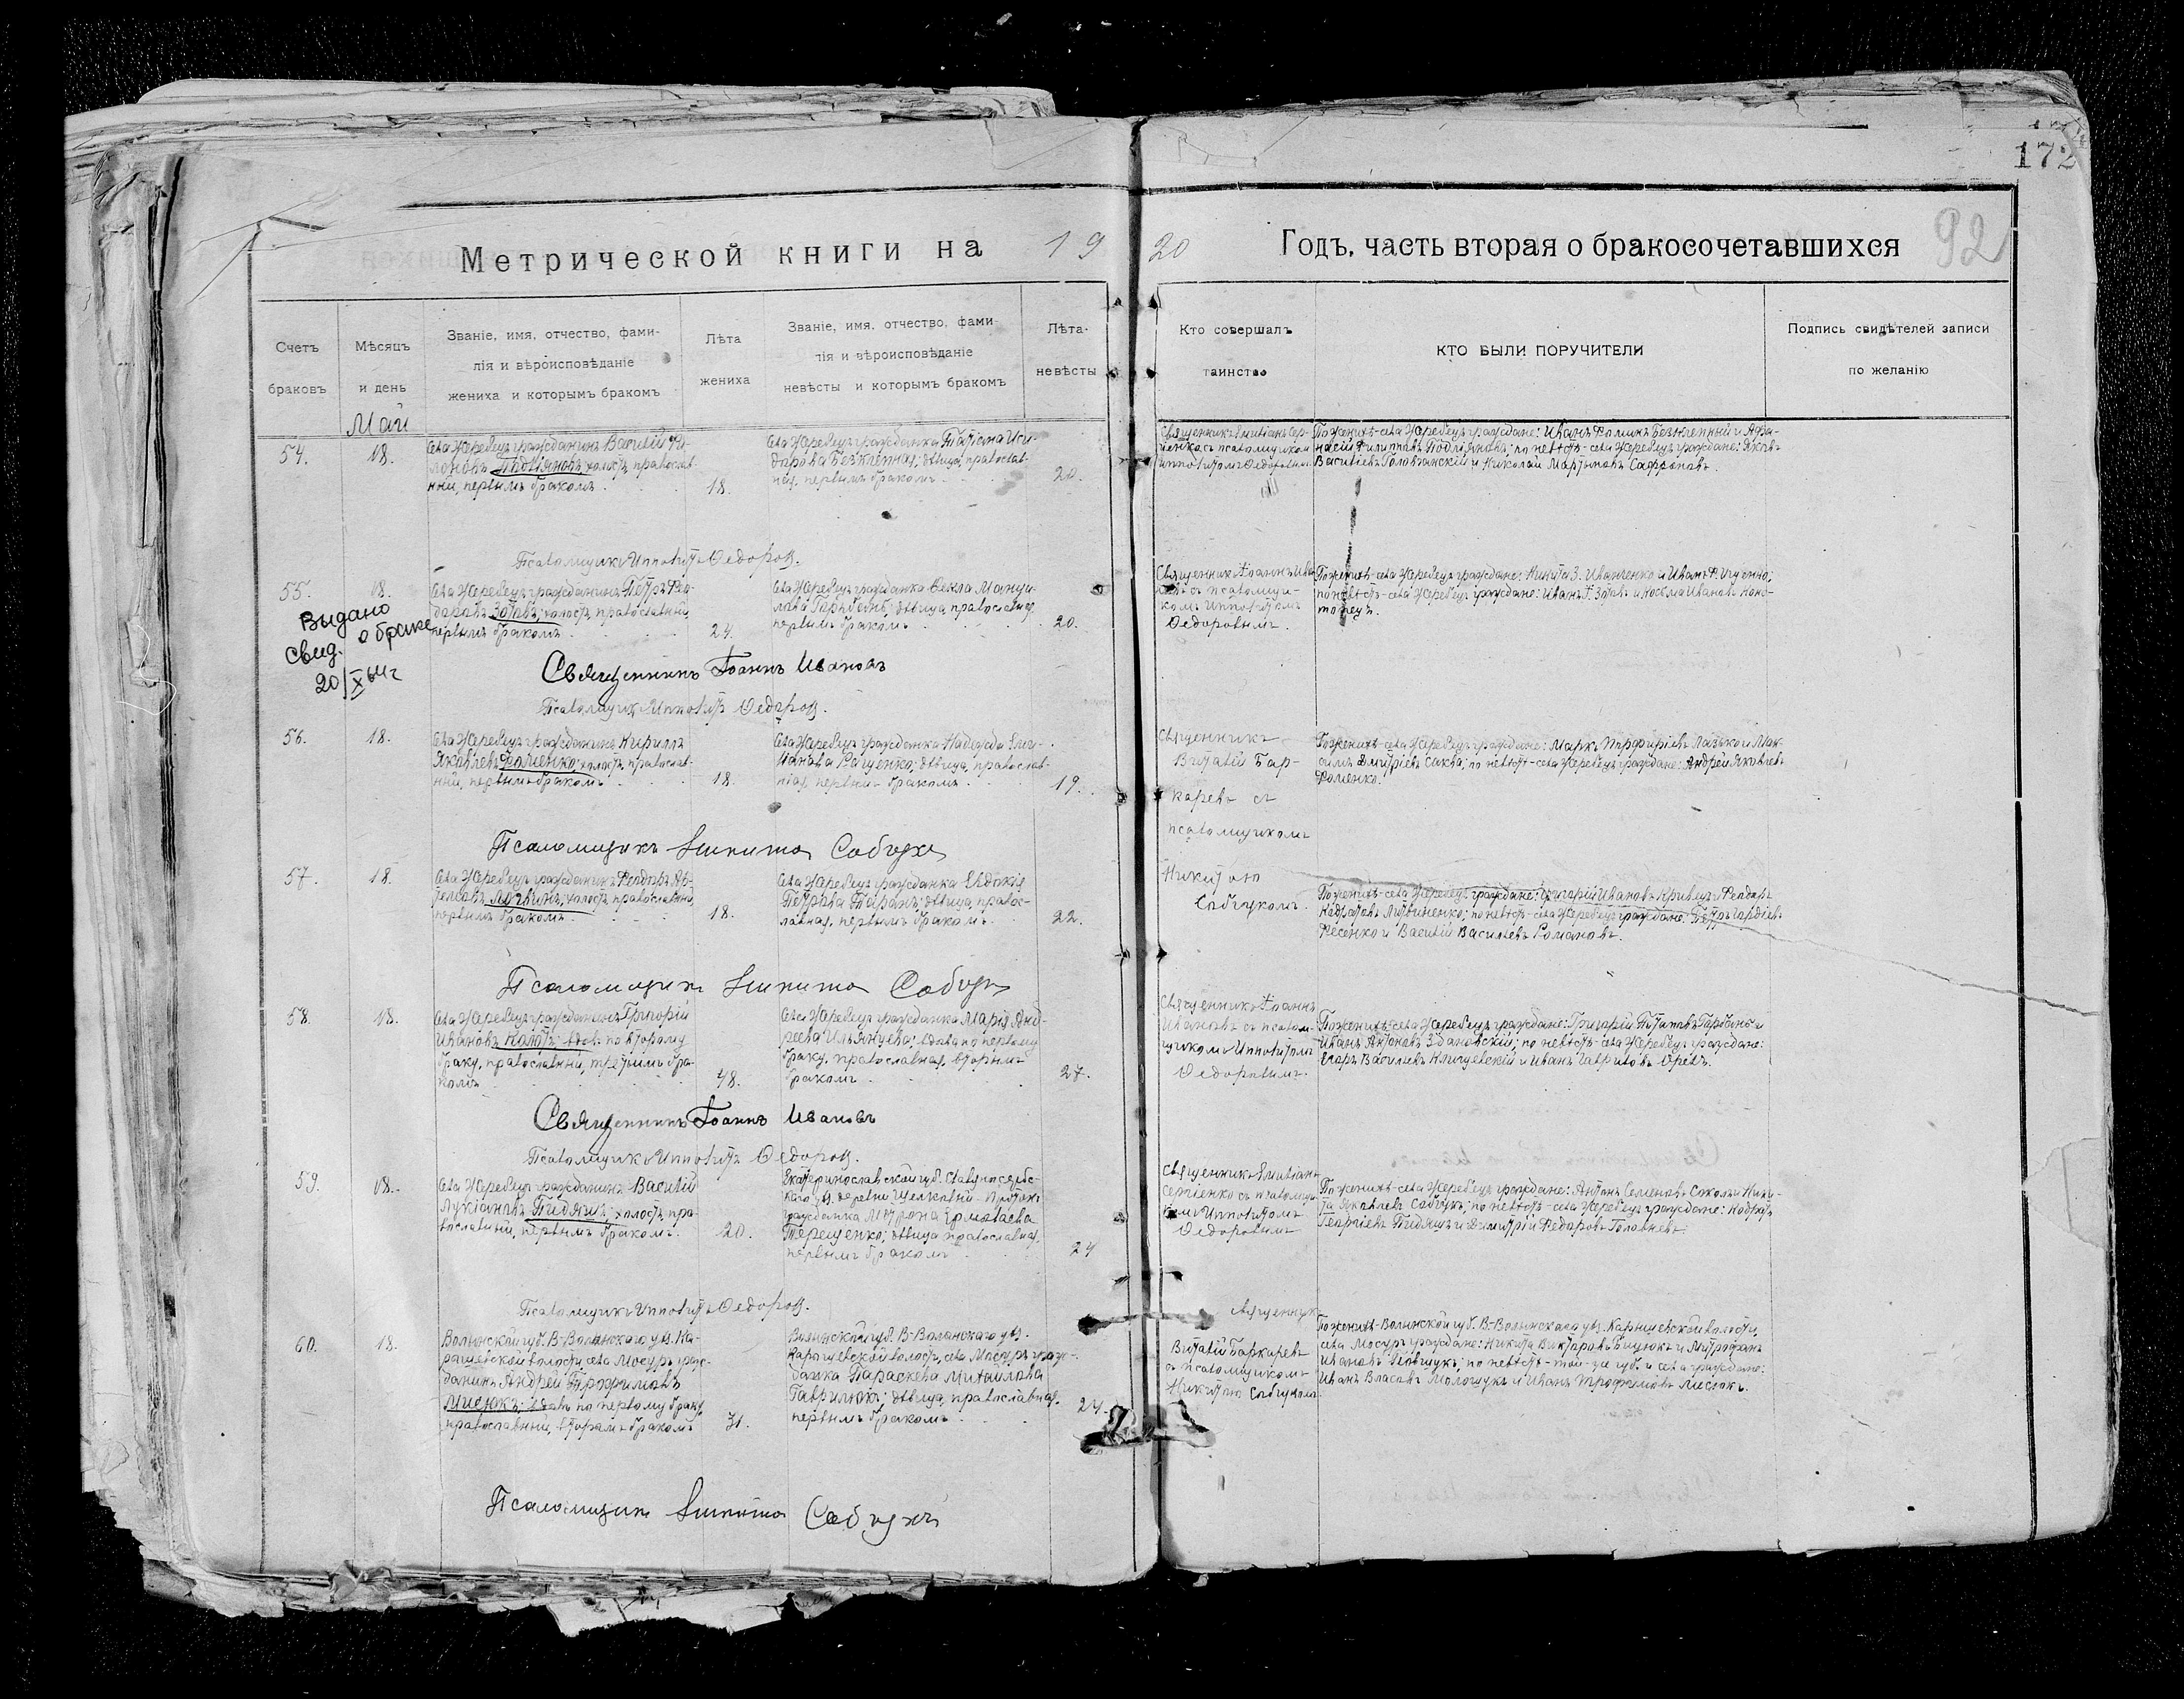 172
Метрической книги на 19
20 Годъ, часть вторая о бракосочетавшихся 92
Счетъ
браковъ
Мѣсяцъ
и день
Званіе, имя, отчество, фами-
лія и вѣроисповѣданіе
жениха и которымъ бракомъ
Лѣта
жениха
Званіе, имя, отчество, фами-
лія и вѣроисповѣданіе
невѣсты и которымъ бракомъ
Лѣта
невѣсты
Кто совершалъ
таинство
КТО БЫЛИ ПОРУЧИТЕЛИ
Подпись свидѣтелей записи
по желанію
Май
54.
18.
села Жеребецъ гражданинъ Василій Фи-
липовъ холостъ, православ-
ный, первымъ бракомъ
18.
села Жеребецъ гражданка Татіана Иси-
дорова Безклепная; дѣвица, православ-
ная, первымъ бракомъ
20.
Священникъ Емиліанъ Сер-
гіенко съ псаломщикомъ
Ипполитомъ Федоровымъ.
По женихѣ - села Жеребецъ граждане: Иванъ Фоминъ Безклепный и Афа-
насій Филипповъ Подліяновъ; по невѣстѣ - села Жеребецъ граждане: Яковъ
Василіевъ и Николай Мартыновъ Сафроновъ.
Псаломщикъ Ипполитъ Федоров.
55.
18.
села Жеребецъ гражданинъ Петръ Фео-
доровъ Зотовъ; холостъ, православный,
первымъ бракомъ
24.
села Жеребецъ гражданка Фекла Мануи-
лова Горбенко; дѣвица, православная,
первымъ бракомъ
20.
Священникъ Іоаннъ Ива-
новъ съ псаломщи-
комъ Ипполитомъ
Федоровымъ.
По женихѣ - села Жеребецъ граждане: Никита З. Иванченко и Иванъ
по невѣстѣ - села Жеребецъ граждане: Иванъ Г. Зотовъ и Косьма Ивановъ Коно-
топецъ.
Выдано
свид. о браке
20/X 64г
Священникъ Іоаннъ Ивановъ
Псаломщикъ Ипполитъ Федоров.
56.
18.
села Жеребецъ гражданинъ Кириллъ
Яковлевъ Фоменко; холостъ, православ-
ный, первымъ бракомъ
18.
села Жеребецъ гражданка Надежда
Рощенко; дѣвица, православ-
ная, первымъ бракомъ
19.
Священникъ
Виталій Бар-
каревъ съ
псаломщикомъ
По женихѣ - села Жеребецъ граждане: Маркъ Порфиріевъ Лазько и Мак-
симъ Димитріевъ Саква; по невѣстѣ - села Жеребецъ граждане: Андрей Яковлевъ
Фоменко.
Псаломщикъ Никита Собчукъ
57.
18.
села Жеребецъ гражданинъ Феодоръ
Литвинъ, холостъ, православный,
первымъ бракомъ
18.
села Жеребецъ гражданка Евдокія
Петрова Таранъ; дѣвица, право-
славная, первымъ бракомъ
22.
Никитою
Собчукомъ.
По женихѣ - села Жеребецъ граждане: Григорій Ивановъ Кривецъ и Феодоръ
Кодратовъ Литвиненко; по невѣстѣ - села Жеребецъ граждане: Петръ Гордіевъ
Фесенко и Василій Васильевъ Романовъ.
Псаломщикъ Никита Собчукъ
58.
18.
села Жеребецъ гражданинъ Григорій
Ивановъ вдовъ по второму
браку, православный, третьимъ бра-
комъ
48.
села Жеребецъ гражданка Марія Анд-
реева Ильянцева; вдова по первому
браку, православная, вторымъ
бракомъ
27.
Священникъ Іоаннъ
Ивановъ съ псалом-
щикомъ Ипполитомъ
Федоровымъ.
По женихѣ - села Жеребецъ граждане: Григорій Потаповъ Горбань и
Иванъ Антоновъ Здановскій; по невѣстѣ - села Жеребецъ граждане:
Егоръ Василіевъ Кличевскій и Иванъ Гавриловъ Орелъ.
Священникъ Іоаннъ Ивановъ
Псаломщикъ Ипполитъ Федоров.
59.
18.
села Жеребецъ гражданинъ Василій
Лукіановъ Бидяшъ; холостъ, пра-
вославный, первымъ бракомъ.
20.
Екатеринославской губ. Славяносерб-
скаго у. деревни
гражданка Матрона Ермолаева
Терещенко; дѣвица, православная,
первымъ бракомъ
24
Священникъ Емиліанъ
Сергіенко съ псаломщи-
комъ Ипполитомъ
Федоровымъ
По женихѣ - села Жеребецъ граждане: Антонъ Семеновъ Соколъ и Ники-
та Яковлевъ Собчукъ; по невѣстѣ - села Жеребецъ граждане: Кодратъ
Георгіевъ Бидяшъ и Димитрій Федоровъ Головневъ.
Псаломщикъ Ипполитъ Федоров.
60.
18.
Волынской губ. В-Волынскаго уѣз. Ко-
рытницкой волости, села Мосуръ граж-
данинъ Андрей Трофимовъ
Мисюкъ; вдовъ по первому браку,
православный, вторымъ бракомъ
31.
Волынской губ. В-Волынскаго уѣз.
волости, села Мосуръ граж-
данка Параскева Михаилова
Гаврилюкъ; дѣвица, православная,
первымъ бракомъ
24.
священникъ
Виталій Баркаревъ
съ псаломщикомъ
Никитою Собчукомъ
По женихѣ - Волынской губ. В-Волынскаго уѣз. волости,
села Мосуръ граждане: Никита Викторовъ и Митрофанъ
Ивановъ по невѣстѣ - той-же губ. и села граждане:
Иванъ Власовъ и Иванъ Трофимовъ Мисюкъ.
Псаломщикъ Никита Собчукъ